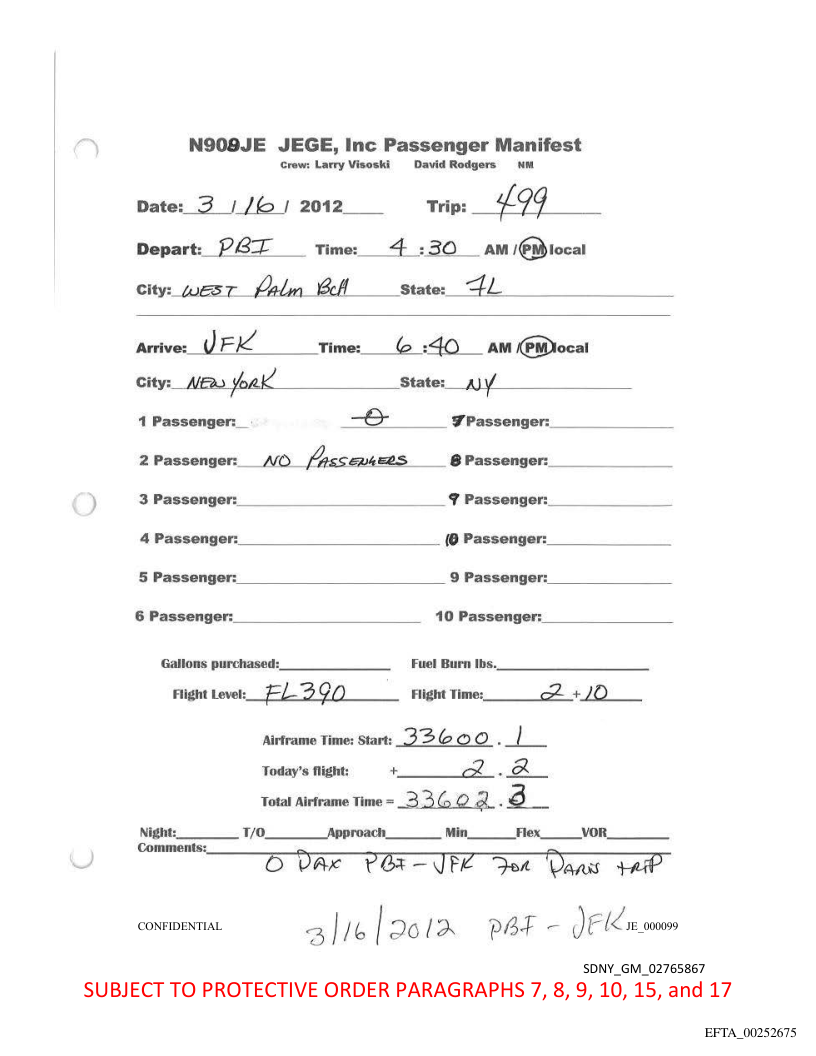 N909JE JEGE, Inc Passenger Manifest
Crew: Larry Visoski David Rodgers NM
Date: 3 / 16 / 2012 Trip: 499
Depart: PBI Time: 4 : 30 AM / PM local
City: WEST PALM BCH State: FL
Arrive: JFK Time: 6 : 40 AM / PM local
City: NEW YORK State: NY
1 Passenger: 0 7 Passenger:
2 Passenger: NO PASSENGERS 8 Passenger:
3 Passenger: 9 Passenger:
4 Passenger: 10 Passenger:
5 Passenger: 9 Passenger:
6 Passenger: 10 Passenger:
Gallons purchased: Fuel Burn lbs.
Flight Level: FL390 Flight Time: 2 + 10
Airframe Time: Start: 33600 . 1
Today's flight: + 2 . 2
Total Airframe Time = 33602 . 3
Night: T/O Approach Min Flex VOR
Comments:
0 PAX PBI - JFK FOR PARIS TRIP
3/16/2012 PBI - JFK
CONFIDENTIAL JE_000099
SDNY_GM_02765867
SUBJECT TO PROTECTIVE ORDER PARAGRAPHS 7, 8, 9, 10, 15, and 17
EFTA_00252675